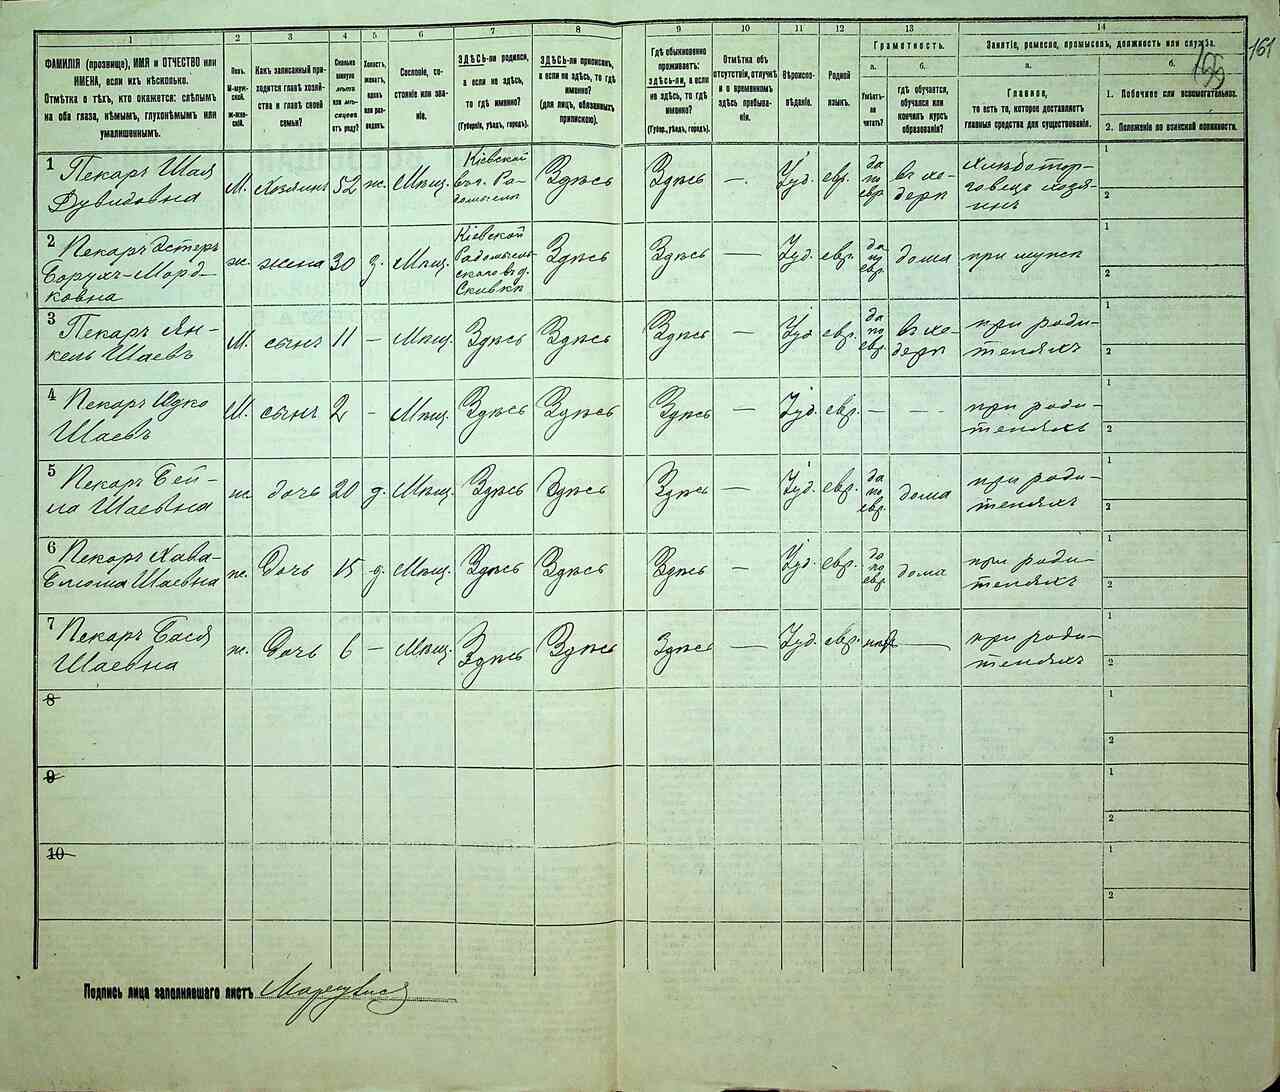 161
1
2
3
4
5
6
7
8
9
10
11
12
13
14
ФАМИЛІЯ (прозвище), ИМЯ и ОТЧЕСТВО или
ИМЕНА, если ихъ нѣсколько.
Отмѣтка о тѣхъ, кто окажется: слѣпымъ
на оба глаза, нѣмымъ, глухонѣмымъ или
умалишеннымъ.
Полъ.
М-муж-
ской.
ж-жен-
скій.
Какъ записанный при-
ходится главѣ хозяй-
ства и главѣ своей
семьи?
Сколько
минуло
лѣтъ
или мѣ-
сяцевъ
отъ роду?
Холостъ,
женатъ,
вдовъ
или раз-
веденъ.
Сословіе, со-
стояніе или зва-
ніе.
ЗДѢСЬ-ли родился,
а если не здѣсь,
то гдѣ именно?
(Губернія, уѣздъ, городъ).
ЗДѢСЬ-ли приписанъ,
а если не здѣсь, то гдѣ
именно?
(для лицъ, обязанныхъ
припискою).
Гдѣ обыкновенно
проживаетъ:
здѣсь-ли, а если
не здѣсь, то гдѣ
именно?
(Губер., уѣздъ, городъ).
Отмѣтка объ
отсутствіи, отлучкѣ
и о временномъ
здѣсь пребыва-
ніи.
Вѣроиспо-
вѣданіе.
Родной
языкъ.
Грамотность.
а.
Умѣетъ-
ли
читать?
б.
гдѣ обучается,
обучался или
кончилъ курсъ
образованія?
Занятіе, ремесло, промыселъ, должность или служба.
а.
Главное,
то есть то, которое доставляетъ
главныя средства для существованія.
б.
1. Побочное или вспомогательное.
2. Положеніе по воинской повинности.
1 Пекаръ Шая
Дувидовна
М.
Хозяинъ
52
ж.
Мѣщ.
Кіевской
Здѣсь
Здѣсь
—
Іуд.
евр.
да
по
евр.
въ хе-
дерѣ
хлѣботор-
говецъ хозя-
инъ
1
2
2 Пекаръ Эстеръ
Борухъ-Морд-
ковна
ж.
жена
30
з.
Мѣщ.
Кіевской
Радомысль-
Здѣсь
Здѣсь
—
Іуд.
евр.
да
по
евр.
дома
при мужѣ
1
2
3 Пекаръ Ян-
кель Шаевъ
М.
сынъ
11
—
Мѣщ.
Здѣсь
Здѣсь
Здѣсь
—
Іуд.
евр.
да
по
евр.
въ хе-
дерѣ
при роди-
теляхъ
1
2
4 Пекаръ Юдко
Шаевъ
М.
сынъ
2
-
Мѣщ.
Здѣсь
Здѣсь
Здѣсь
—
Іуд.
евр.
—
—
при роди-
теляхъ
1
2
5 Пекаръ Бей-
ла Шаевна
ж.
дочь
20
д.
Мѣщ.
Здѣсь
Здѣсь
Здѣсь
—
Іуд.
евр.
да
по
евр.
дома
при роди-
теляхъ
1
2
6 Пекаръ Хава-
Блюма Шаевна
ж.
Дочь
15
д.
Мѣщ.
Здѣсь
Здѣсь
Здѣсь
—
Іуд.
евр.
да
по
евр.
дома
при роди-
теляхъ
1
2
7 Пекаръ Бася
Шаевна
ж.
Дочь
6
—
Мѣщ.
Здѣсь
Здѣсь
Здѣсь
—
Іуд.
евр.
нѣтъ
—
при роди-
теляхъ
1
2
8
1
2
9
1
2
10
1
2
Подпись лица заполнявшаго листъ